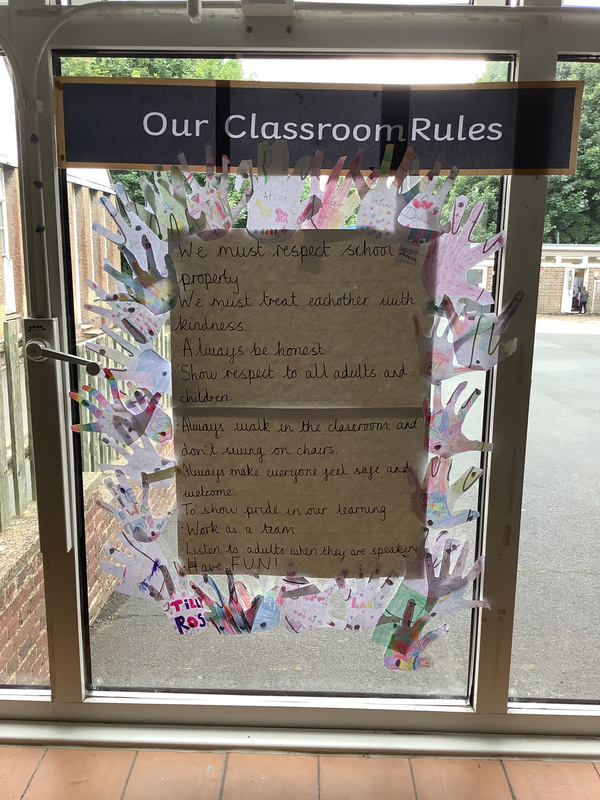 Our Classroom Rules
We must respect school
property
We must treat eachother with
kindness
· Always be honest
· Show respect to all adults and
children
· Always walk in the classroom and
don't swing on chairs.
· Always make everyone feel safe and
welcome
· To show pride in our learning
· Work as a team
· Listen to adults when they are speakin
· Have FUN!
TILLY
ROS